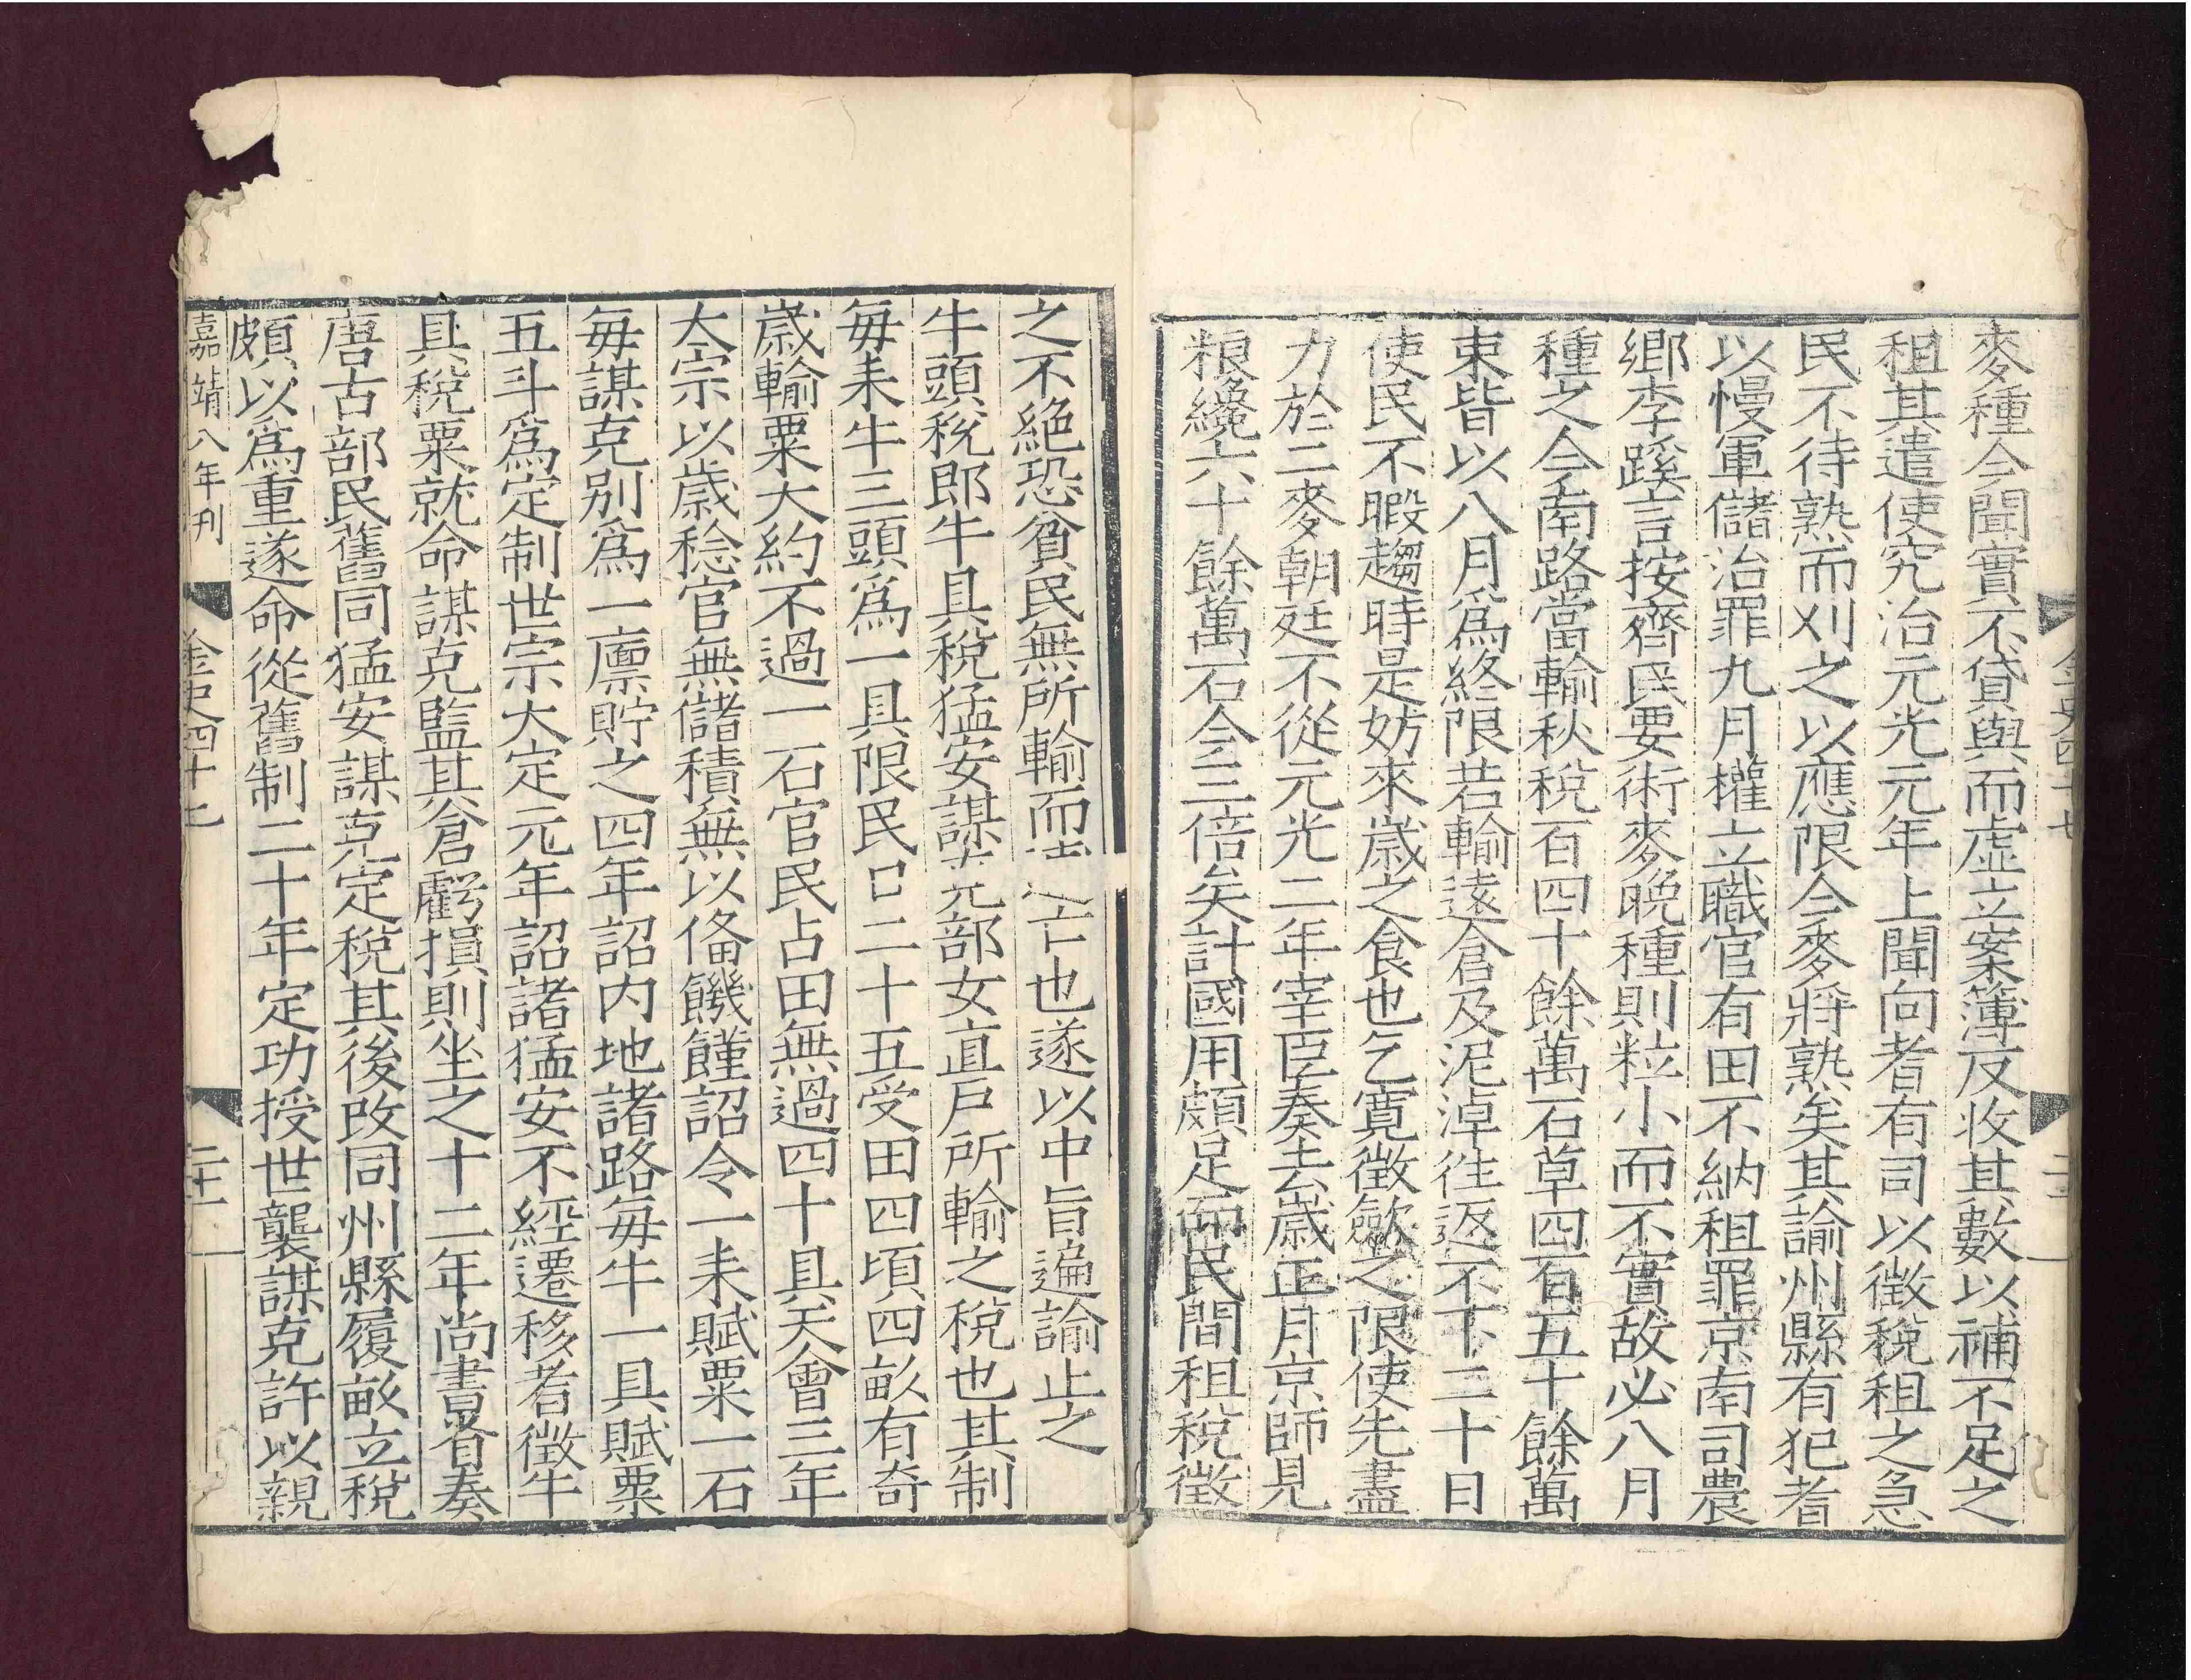 麥種今聞實不貸與而虛立案簿反收其數以補不足之
租其遣使究治元光元年上聞向者有司以徵稅租之急
民不待熟而刈之以應限今麥將熟矣其諭州縣有犯者
以慢軍儲治罪九月權立職官有田不納租罪京南司農
鄉李蹊言按齊民要術麥晚種則粒小而不實故必八月
種之今南路當輸秋稅百四十餘萬石草四百五十餘萬
束皆以八月爲終限若輸遠倉及泥淖往返不下二十日
使民不暇趨時是妨來歲之食也乞寬徵歛之限使先盡
力於二麥朝廷不從元光二年宰臣奏去歲正月京師見
粮纔六十餘萬石今三倍矣計國用頗足而民間租稅徵
之不絕恐貧民無所輸而亡也遂以中旨遍諭止之
牛頭稅即牛具稅猛安謀克部女直戶所輸之稅也其制
每耒牛三頭爲一具限民口二十五受田四頃四畝有奇
歲輸粟大約不過一石官民占田無過四十具天會三年
太宗以歲稔官無儲積無以俻饑饉詔令一耒賦粟一石
每謀克別爲一廩貯之四年詔内地諸路每牛一具賦粟
五斗爲定制世宗大定元年詔諸猛安不經遷移者徵牛
具稅粟就命謀克監其倉虧損則坐之十二年尚書省奏
唐古部民舊同猛安謀克定稅其後改同州縣履畝立稅
頗以爲重遂命從舊制二十年定功授世襲謀克許以親
嘉靖八年刊
金史四十七
二十一